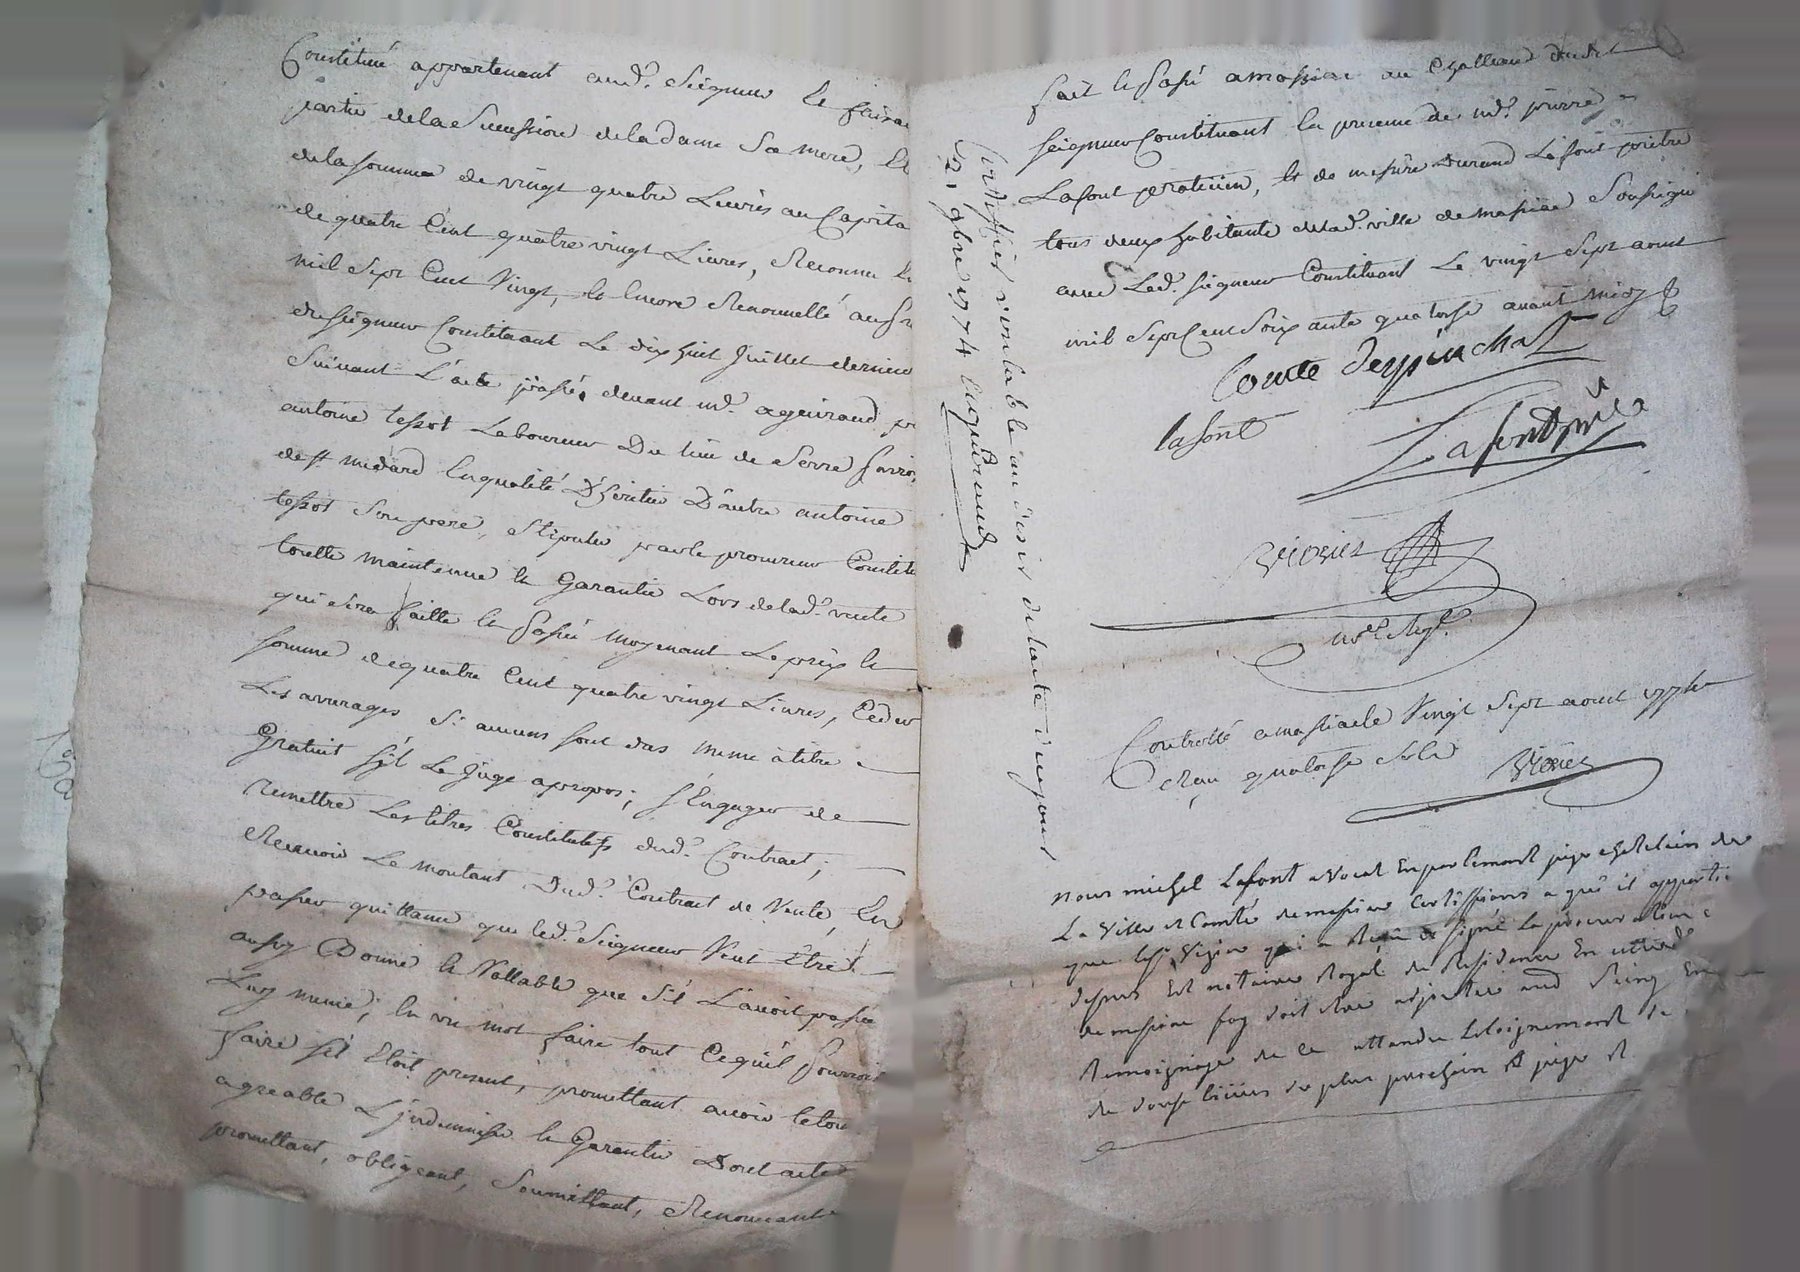 Constitué appartenant aud. Seigneur le faisa
partie dela Sucession dela dame Sa mere, le
dela Somme de vingt quatre Livres au Capita
de quatre Cent quatre vingt Livres, Reconnu le
mil Sept Cent Vingt, & Encore Renouvellé au
du Seigneur Constituant Le dix huit Juillet dernier
Suivant L'acte passé devant md. agueiraud
antoine tessot Laboureur Du lieu de Serre
de st médard En qualité D'héritier D'autre antoine
tessot Son pere, Stipuler par le procureur Constit
toutte maintenue & Garantie Lors de lad. vente
qui Sera faitte & passé moyenant Le prix &
Somme de quatre Cent quatre vingt Livres, Ceder
Les arrerages Si aucuns Sont dus meme a titre
Gratuit S'il Le Juge apropos; S'Engager de
Remettre Les titres Constitutifs dud. Contract,
Recevoir Le montant Dud. Contract de Vente, En
passer quittance que led. Seigneur Veut Etre
aussy Bonne & Vallable que S'il L'avoit passée
Luy meme; En un mot faire tout Ce qu'il pourroit
faire S'il Etoit present, promettant avoir le tou
agreable L'indemniser & Garantir Dont acte
promettant, obligeant, Soumettant, Renonceant
certiffié veritable au desir de l'acte de ce jour
9bre 1774
fait & passé a massiac au Chatteaud dudit
Seigneur Constituant En presence de md. pierre
Lafont praticien, & de messire Durand Lafont prêtre
tous deux habitants delad. ville de massiac Soussigné
avec Led. Seigneur Constituant Le vingt Sept aout
mil Sept Cent Soix ante quatorse avant midy
Comte despinchal
lafont
Lafont
Vizier
nore Royl.
Controllé a massiac le Vingt Sept aout 1774
Reçu quatorse Sols
Vizier
nous michel Lafont avocat En parlement juge chatelain de
La ville et Comté de massiac Certiffions a qui il appartie
que le Sr Vizier qui a Reçu & Signé La procuration
dessus Est notaire Royal de Residence En cette
de massiac foy doit etre adjoutée aud Seing En
temoignage de ce attendu L'eloignement de
de douse lieues du plus prochain